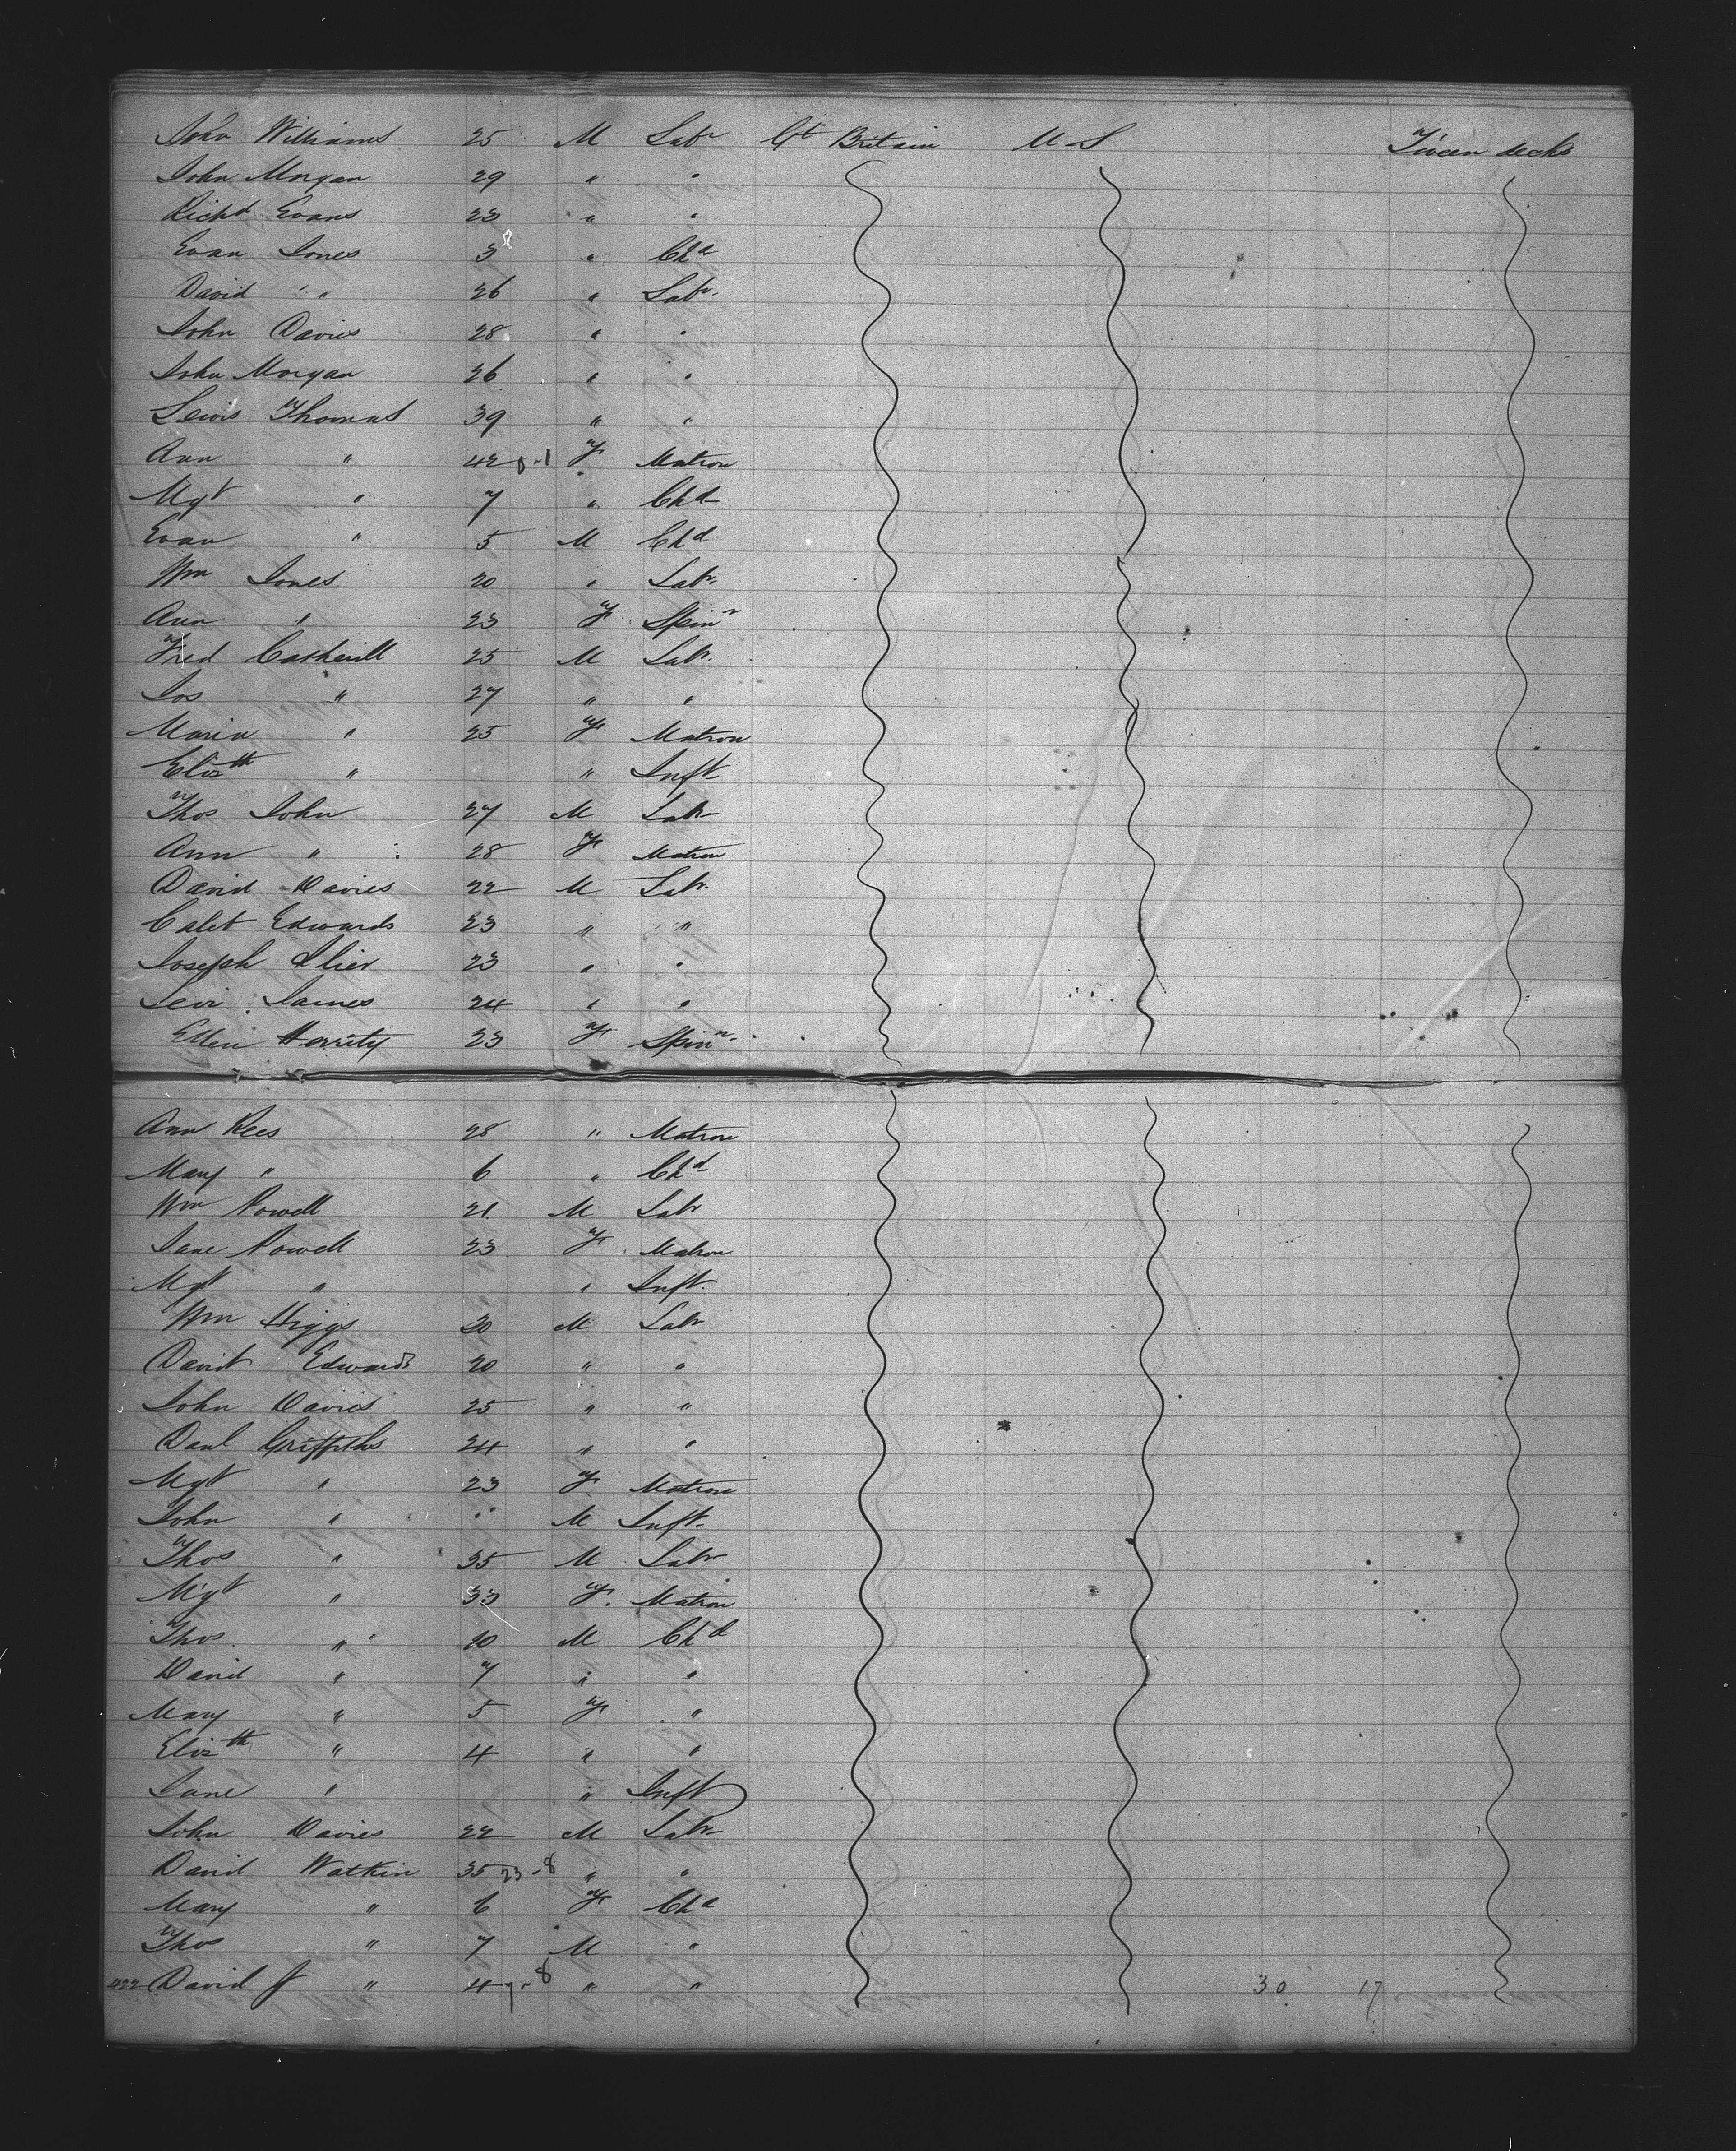 John Williams 25 M Labr Gt Britain U S Tween decks
John Morgan 29 " "
Richd Evans 23 " "
Evan Jones 3 " Chd
David " 26 " Labr
John Davies 28 " "
John Morgan 26 " "
Lewis Thomas 39 " "
Ann " 42 F Matron
Mgt " 7 " Chd
Evan " 5 M Chd
Wm Jones 20 " Labr
Ann " 23 F Spinr
Fred 25 M Labr
Jos " 27 " "
Maria " 25 F Matron
Elizth " " Inft
Thos John 27 M Labr
Ann " 28 F Matron
David Davies 22 M Labr
Caleb Edwards 23 " "
Joseph 23 " "
Levi James 24 " "
Ellen Herrity 23 F Spinr
Ann Rees 28 " Matron
Mary " 6 " Chd
Wm Powell 21 M Labr
Jane Powell 23 F Matron
Mgt " " Inft
Wm Higgs 20 M Labr
David Edwards 20 " "
John Davies 25 " "
Danl Griffiths 24 " "
Mgt " 23 F Matron
John " " M Inft
Thos " 35 M Labr
Mgt " 33 F Matron
Thos " 10 M Chd
David " 7 " "
Mary " 5 F "
Elizth " 4 " "
Jane " " Inft
John Davies 22 M Labr
David Watkin 35 23-8 " "
Mary " 6 F Chd
Thos " 7 M "
422 David J " 4 7-8 " " 30 17